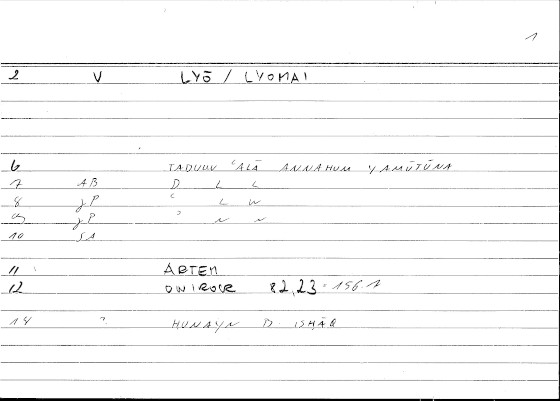 1
2 V LYŌ / LYOMAI
6 TADULLU ʿALĀ ANNAHUM YAMŪTŪNA
7 AB D L L
8 JP ʿ L W
9 JP ʾ N N
10 SA
11 ARTEM
12 ONIROCR 82,23 = 156.7
14 ? HUNAYN B. ISHĀQ